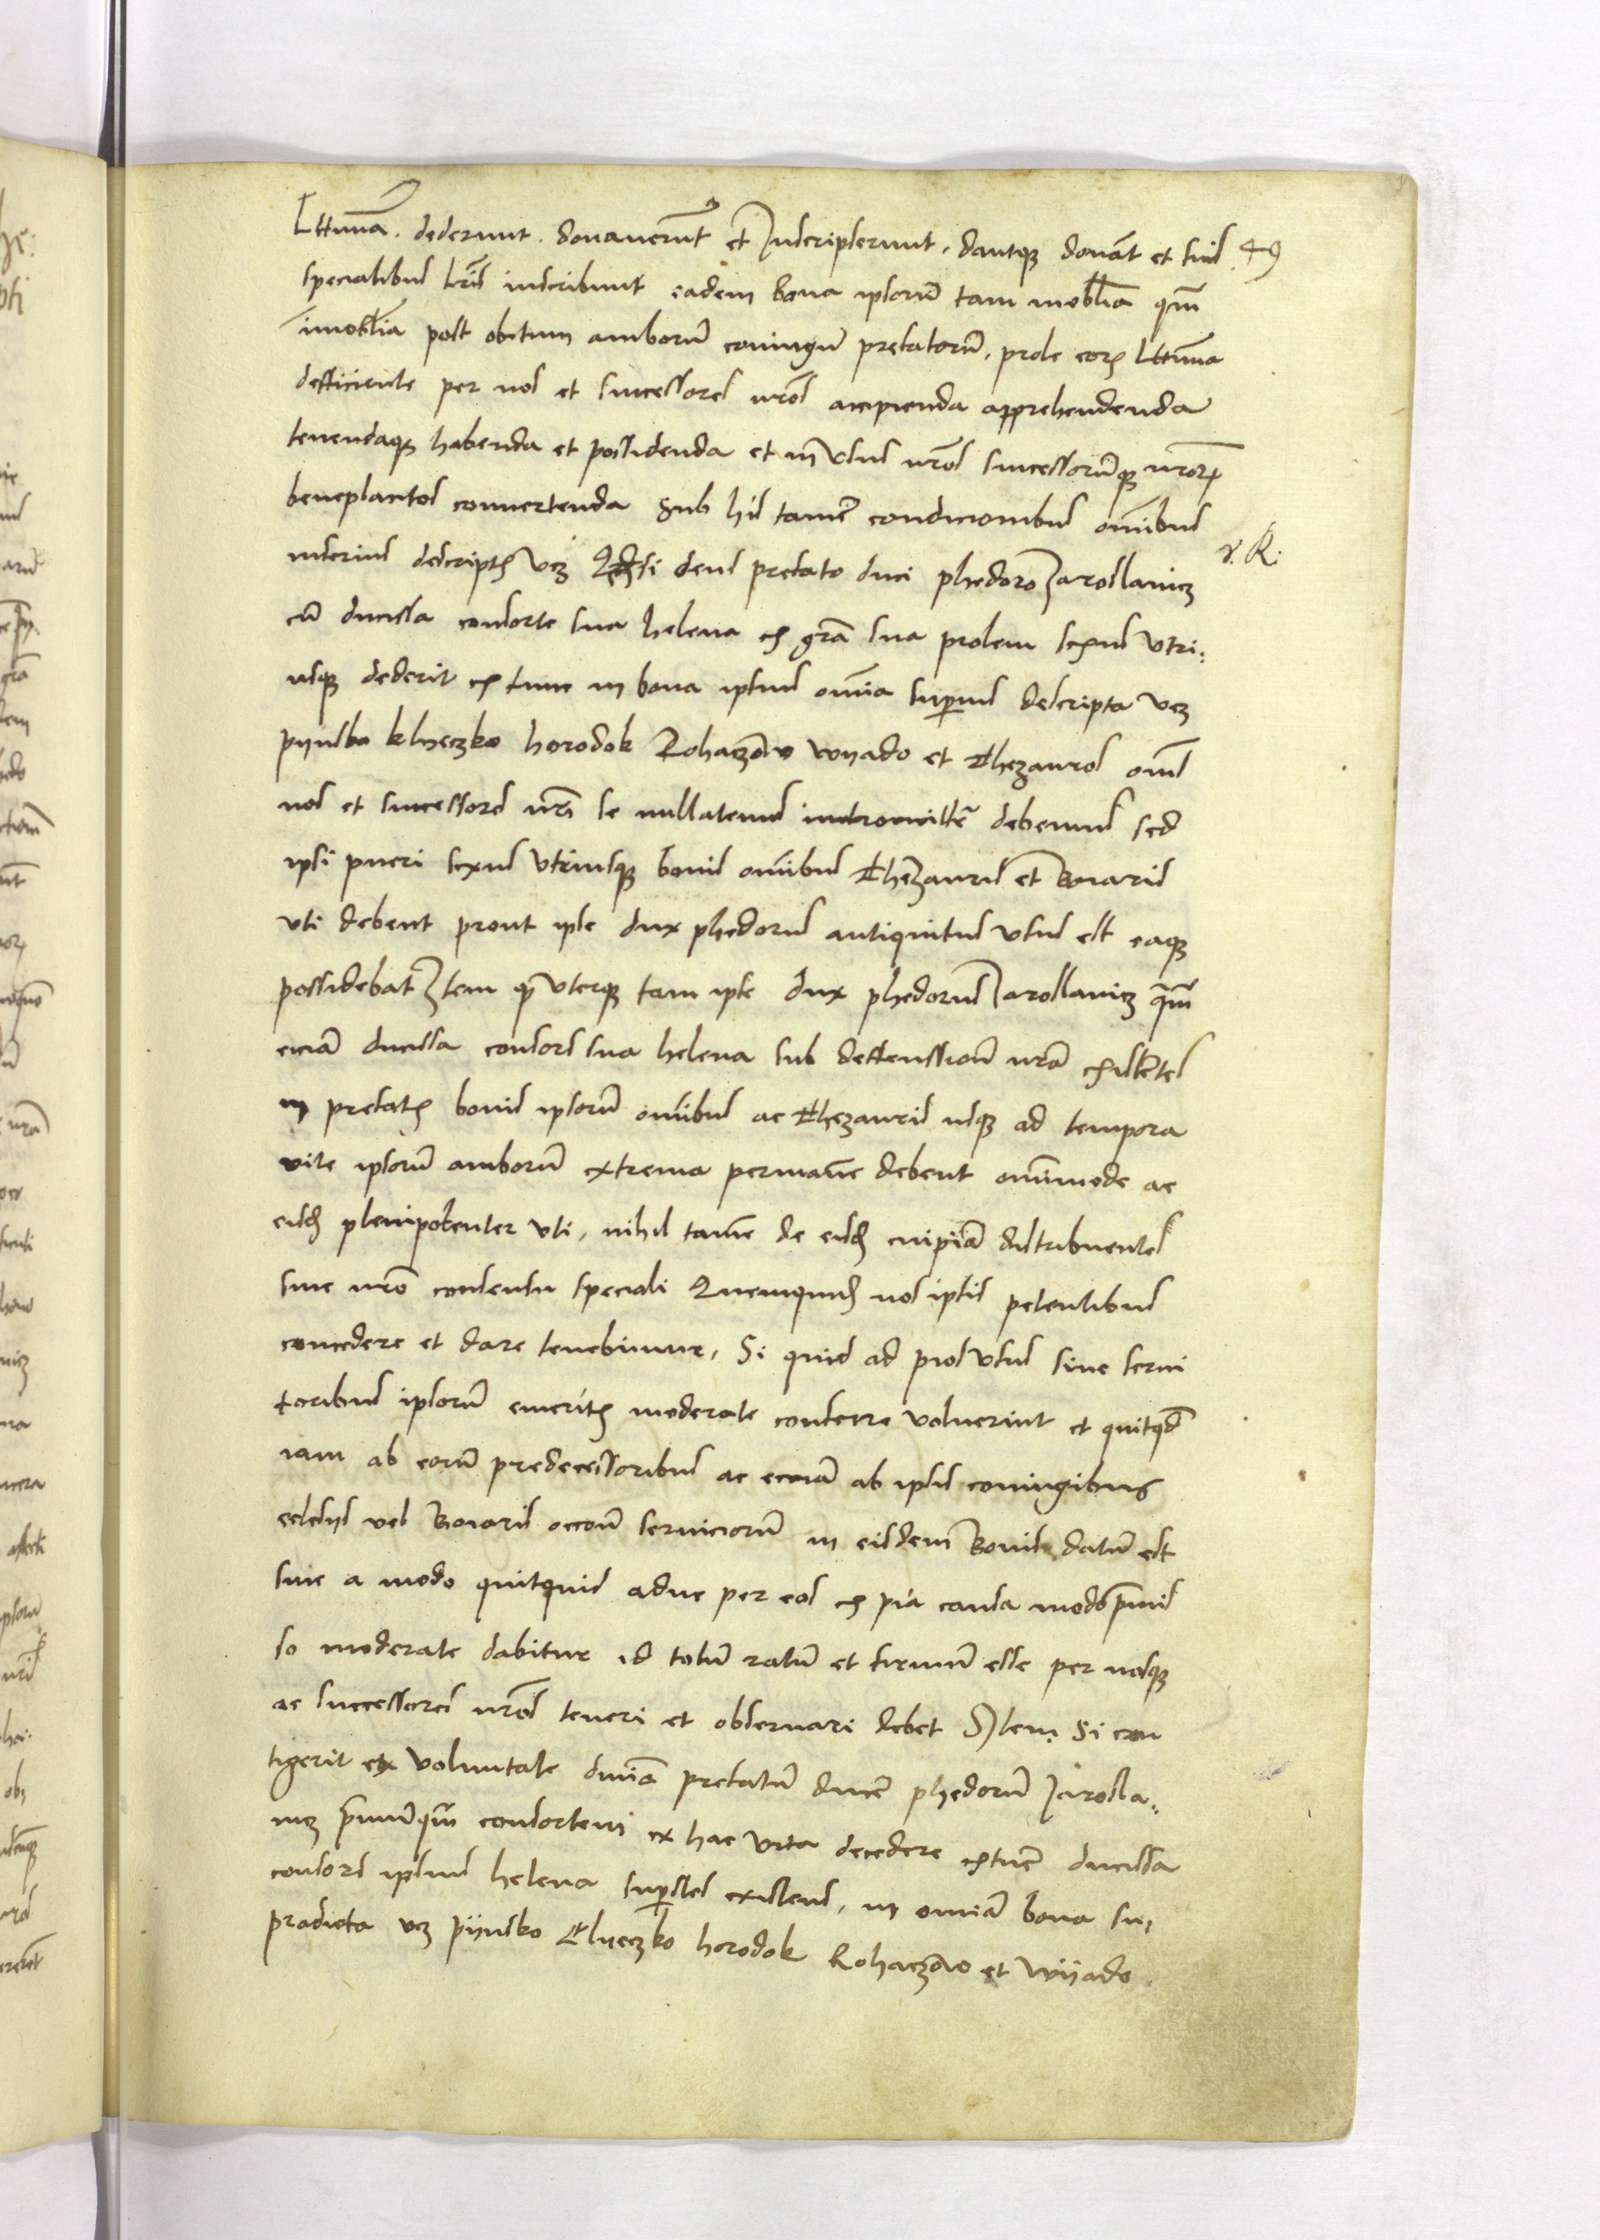 Lttimã. dederunt. donauerũt et Inscripserunt. dantqz donãt et suis
specialibus lrĩs inscribunt eadem bona ipsorũ tam mobl̃ia qm̃
imobl̃ia post obitum amborũ coniugũ prefatorũ. prole eorz lttima
defficiente per nos et successores nrõs accipienda apprehendenda
tenendaqz habenda et possidenda et in vsus nrõs successorũqz nrõrz
beneplacitos conuertenda Sub his tamẽ condicionibus omĩbus
inferius descriptis vcz si deus prefato duci phedoro Jaroslauicz
cũ ducissa consorte sua helena ex grã sua prolem sexus vtri:
usqz dederit extunc in bona ipsius omĩa superius descripta vcz
pijnsko klyeczko horodok Rohaczow wyado et Thezauros om̃s
nos et successores nrĩ se nullatenus intromittẽ debemus sed
ipsi pueri sexus vtriusqz bonis omĩbus Thezauris et Boiaris
vti debent prout ipse dux phedorus antiquitus vsus est eaqz
possidebat Item qz vterqz tam ipse dux phedorus Jaroslauicz qm̃
eciã ducissa consors sua helena sub deffenssionẽ nrã existentes
in prefatis bonis ipsorũ omĩbus ac Thezauris usqz ad tempora
vite ipsorũ amborũ extrema permanẽ debent omĩmode ac
eisd plenipotenter vti, nihil tamẽ de eisd cuipiã distribuentes
sine nrõ consensu speciali Quemquid nos ipsis petentibus
concedere et dare tenebimur, Si quid ad pios vsus siue serui
toribus ipsorũ emeritis moderate conferre voluerint et quitqd
iam ab eorũ predecessoribus ac eciam ab ipsis coniugibus
ecclesijs vel Boiaris occoñe seruiciorũ in eisdem Bonis datũ est
siue a modo quitquid adhuc per eos ex pia causa modo pmis
so moderate dabitur id totũ ratũ et firmũ esse per nosqz
ac successores nrõs teneri et obseruari debet Item. Si con
tigerit ex voluntate diuiã prefatũ ducẽ phedorũ Jarosla:
uicz primũqm̃ consortem ex hac vita decedere extũc ducissa
consors ipsius helena superstes existens, in omnia bona su,
pradicta vcz pijnsko Clyeczko horodok Rohaczow et wijado
γ. R.